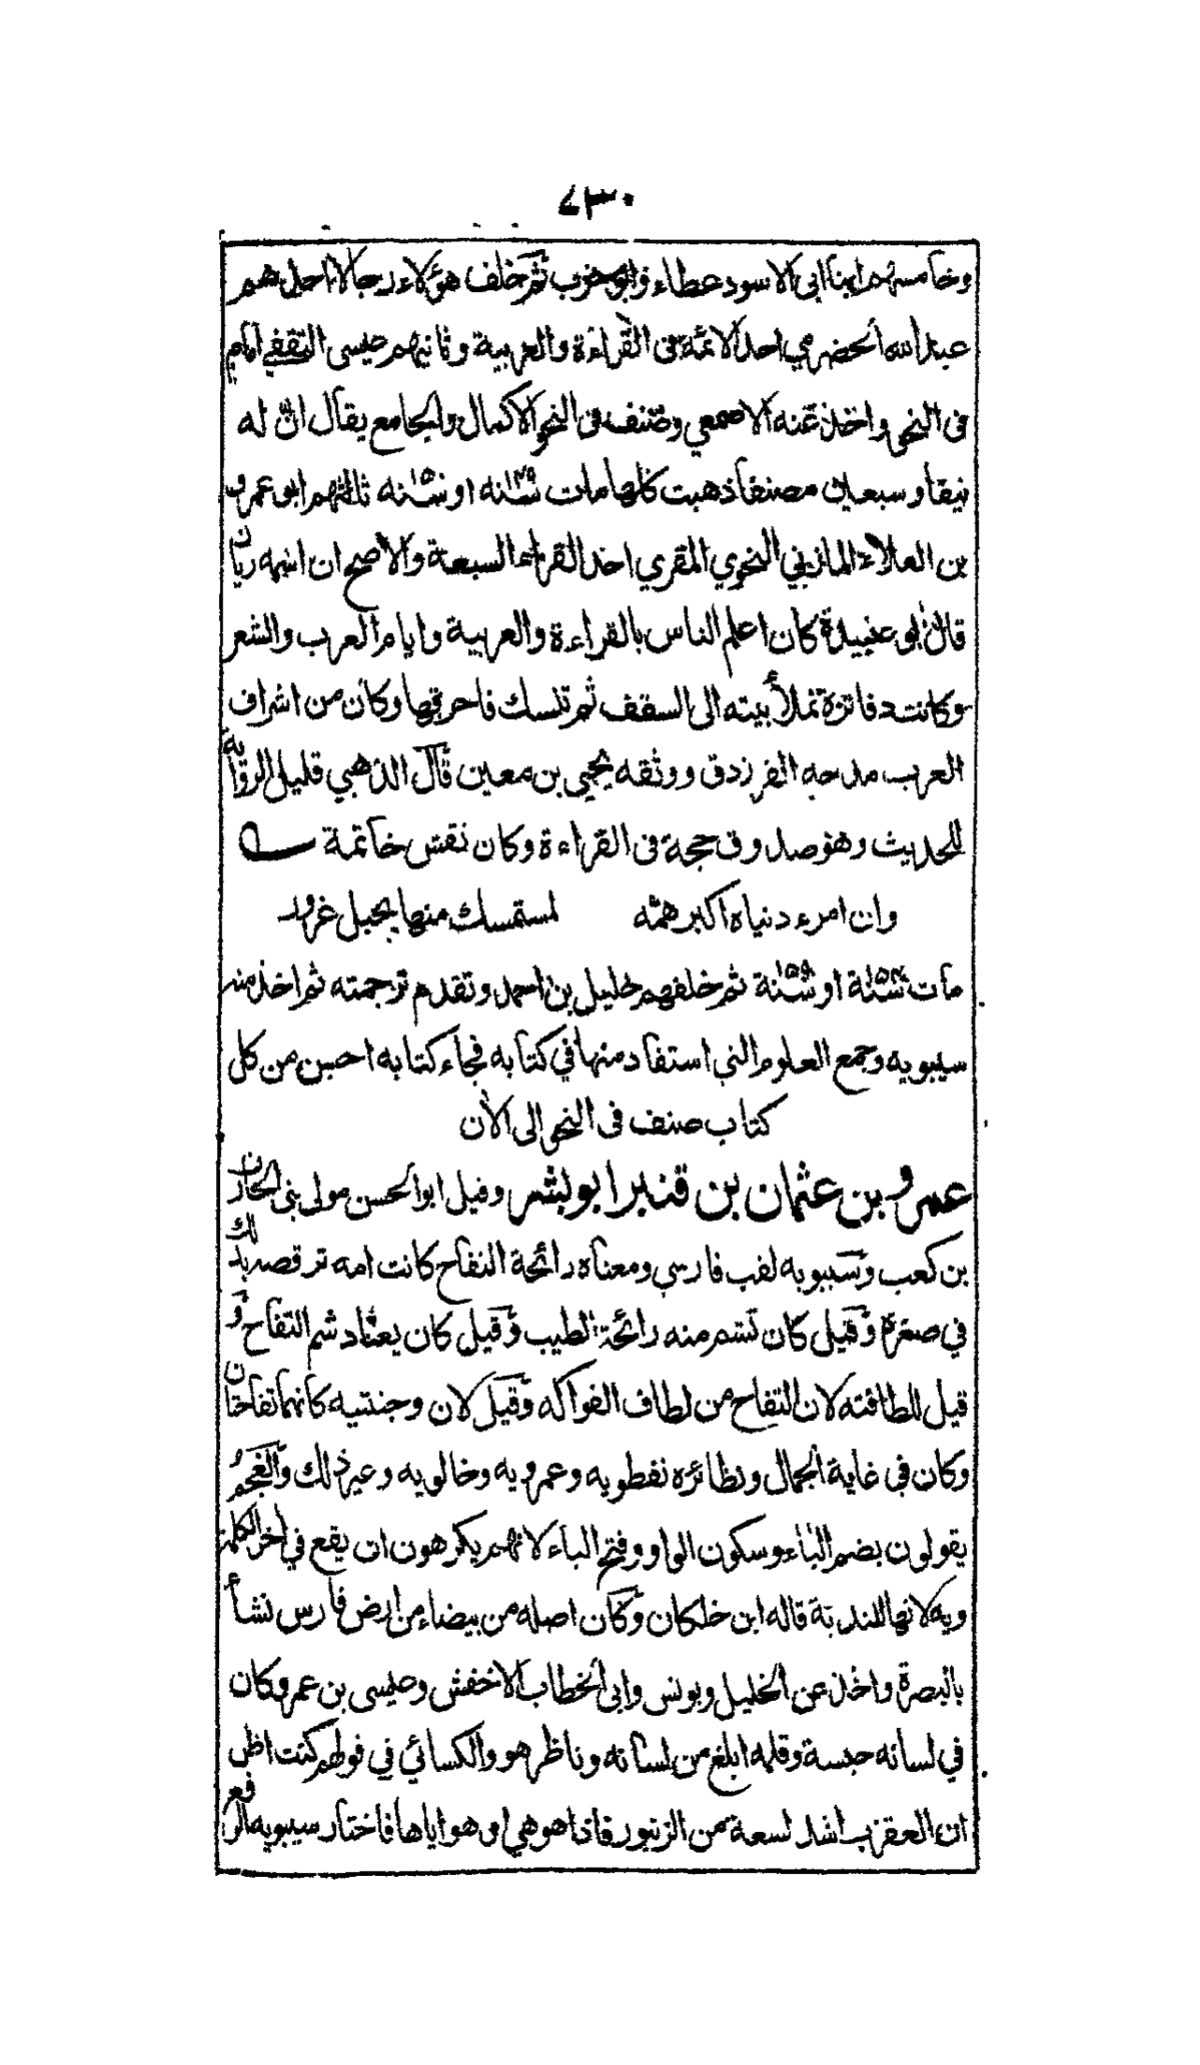 ٧٣٠
وخامسهم ابنا ابي الاسود عطاء وابو حرب ثم خلف هؤلاء رجالا احدهم
عبد الله الحضرمي احد الائمة في القراءة والعربية وثانيهم عيسى الثقفي امام
في النحو واخذ عنه الاصمعي وصنف في النحو الاكمال والجامع يقال ان له
نيفا وسبعين مصنفا ذهبت كلها مات سنة ١٤٩ او سنة ١٥٠ ثالثهم ابو عمرو
بن العلاء المازني النحوي المقري احد القراء السبعة والاصح ان اسمه ريان
قال ابو عبيدة كان اعلم الناس بالقراءة والعربية وايام العرب والشعر
وكانت دفاتره تملأ بيته الى السقف ثم تنسك فاحرقها وكان من اشراف
العرب مدحه الفرزدق ووثقه يحيى بن معين قال الذهبي قليل الرواية
للحديث وهو صدوق حجة في القراءة وكان نقش خاتمة
وان امرء دنياه اكبر همه لمستمسك منها بحبل غرور
مات سنة ١٥٤ او سنة ١٥٩ ثم خلفهم خليل بن احمد وتقدم ترجمته ثم اخذ منه
سيبويه وجمع العلوم التي استفاد منها في كتابه فجاء كتابه احسن من كل
كتاب صنف في النحو الى الآن
عمرو بن عثمان بن قنبر ابو بشر وقيل ابو الحسن مولى بني الحارث
بن كعب وسيبويه لقب فارسي ومعناه رائحة التفاح كانت امه ترقصه بذلك
في صغره وقيل كان تشم منه رائحة الطيب وقيل كان يعتاد شم التفاح و
قيل للطافته لان التفاح من لطاف الفواكه وقيل لان وجنتيه كانهما تفاحتان
وكان في غاية الجمال ونظائره نفطويه وعمرويه وخالويه وغير ذلك والعجم
يقولون بضم الباء وسكون الواو وفتح الياء لانهم يكرهون ان يقع في اخر الكلمة
ويه لانها للندبة قاله ابن خلكان وكان اصله من بيضاء من ارض فارس نشأ
بالبصرة واخذ عن الخليل ويونس وابي الخطاب الاخفش وعيسى بن عمر وكان
في لسانه حبسة وقلمه ابلغ من لسانه وناظر هو والكسائي في قولهم كنت اظن
ان العقرب اشد لسعة من الزنبور فاذا هو هي او هو اياها فاختار سيبويه الرفع